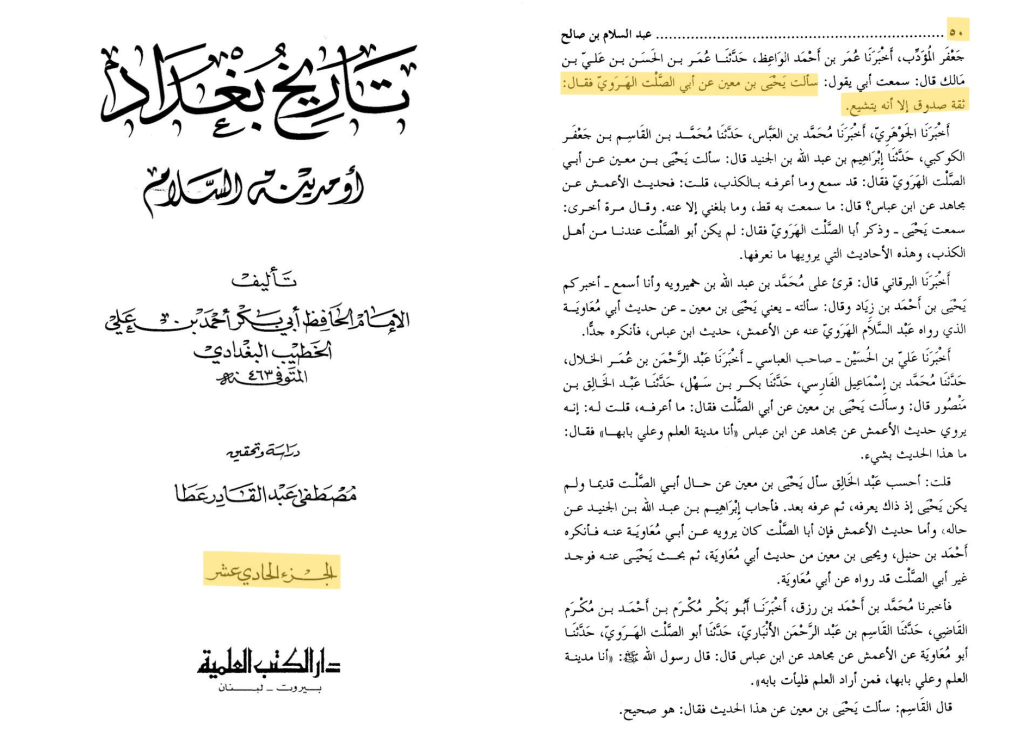 تاريخ بغداد
أو مدينة السلام
تأليف
الإمام الحافظ أبي بكر أحمد بن علي
الخطيب البغدادي
المتوفى ٤٦٣ هـ
دراسة وتحقيق
مصطفى عبد القادر عطا
الجزء الحادي عشر
دار الكتب العلمية
بيروت - لبنان
٥٠ ........ عبد السلام بن صالح
جَعْفَر المُؤَدِّب، أَخْبَرَنَا عُمَر بن أَحْمَد الوَاعِظ، حَدَّثَنَا عُمَر بن الحَسَن بن عَليّ بن
مَالك قال: سمعت أبي يقول: سألت يَحْيَى بن معين عن أبي الصَّلْت الهَرَويّ فقال:
ثقة صدوق إلا أنه يتشيع.
أَخْبَرَنَا الجَوْهَرِيّ، أَخْبَرَنَا مُحَمَّد بن العَبَّاس، حَدَّثَنَا مُحَمَّد بن القَاسِم بن جَعْفَر
الكوكبي، حَدَّثَنَا إِبْرَاهِيم بن عبد الله بن الجنيد قال: سألت يَحْيَى بن معين عن أبي
الصَّلْت الهَرَويّ فقال: قد سمع وما أعرفه بالكذب، قلت: فحديث الأعمش عن
مجاهد عن ابن عباس؟ قال: ما سمعت به قط، وما بلغني إلا عنه. وقال مرة أخرى:
سمعت يَحْيَى ـ وذكر أبا الصَّلْت الهَرَويّ فقال: لم يكن أبو الصَّلْت عندنا من أهل
الكذب، وهذه الأحاديث التي يرويها ما نعرفها.
أَخْبَرَنَا البرقاني قال: قرئ على مُحَمَّد بن عبد الله بن خميرويه وأنا أسمع ـ أخبركم
يَحْيَى بن أَحْمَد بن زِيَاد وقال: سألته ـ يعني يَحْيَى بن معين ـ عن حديث أبي مُعَاوِيَة
الذي رواه عَبْد السَّلَام الهَرَويّ عنه عن الأعمش، حديث ابن عباس، فأنكره جدًّا.
أَخْبَرَنَا عَليّ بن الحُسَيْن ـ صاحب العباسي ـ أَخْبَرَنَا عَبْد الرَّحْمَن بن عُمَر الخلال،
حَدَّثَنَا مُحَمَّد بن إِسْمَاعِيل الفَارِسي، حَدَّثَنَا بكر بن سَهْل، حَدَّثَنَا عَبْد الخَالِق بن
مَنْصُور قال: وسألت يَحْيَى بن معين عن أبي الصَّلْت فقال: ما أعرفه، قلت له: إنه
يروي حديث الأعمش عن مجاهد عن ابن عباس «أنا مدينة العلم وعلي بابها» فقال:
ما هذا الحديث بشيء.
قلت: أحسب عَبْد الخَالِق سأل يَحْيَى بن معين عن حال أبي الصَّلْت قديما ولم
يكن يَحْيَى إذ ذاك يعرفه، ثم عرفه بعد. فأجاب إِبْرَاهِيم بن عبد الله بن الجنيد عن
حاله، وأما حديث الأعمش فإن أبا الصَّلْت كان يرويه عن أبي مُعَاوِيَة عنه فأنكره
أَحْمَد بن حنبل، ويحيى بن معين من حديث أبي مُعَاوِيَة، ثم بحث يَحْيَى عنه فوجد
غير أبي الصَّلْت قد رواه عن أبي مُعَاوِيَة.
فأخبرنا مُحَمَّد بن أَحْمَد بن رزق، أَخْبَرَنَا أَبُو بَكْر مُكْرَم بن أَحْمَد بن مُكْرَم
القَاضِي، حَدَّثَنَا القَاسِم بن عَبْد الرَّحْمَن الأَنْبَارِيّ، حَدَّثَنَا أبو الصَّلْت الهَرَويّ، حَدَّثَنَا
أبو مُعَاوِيَة عن الأعمش عن مجاهد عن ابن عباس قال: قال رسول الله ﷺ: «أنا مدينة
العلم وعلي بابها، فمن أراد العلم فليأت بابه».
قال القَاسِم: سألت يَحْيَى بن معين عن هذا الحديث فقال: هو صحيح.